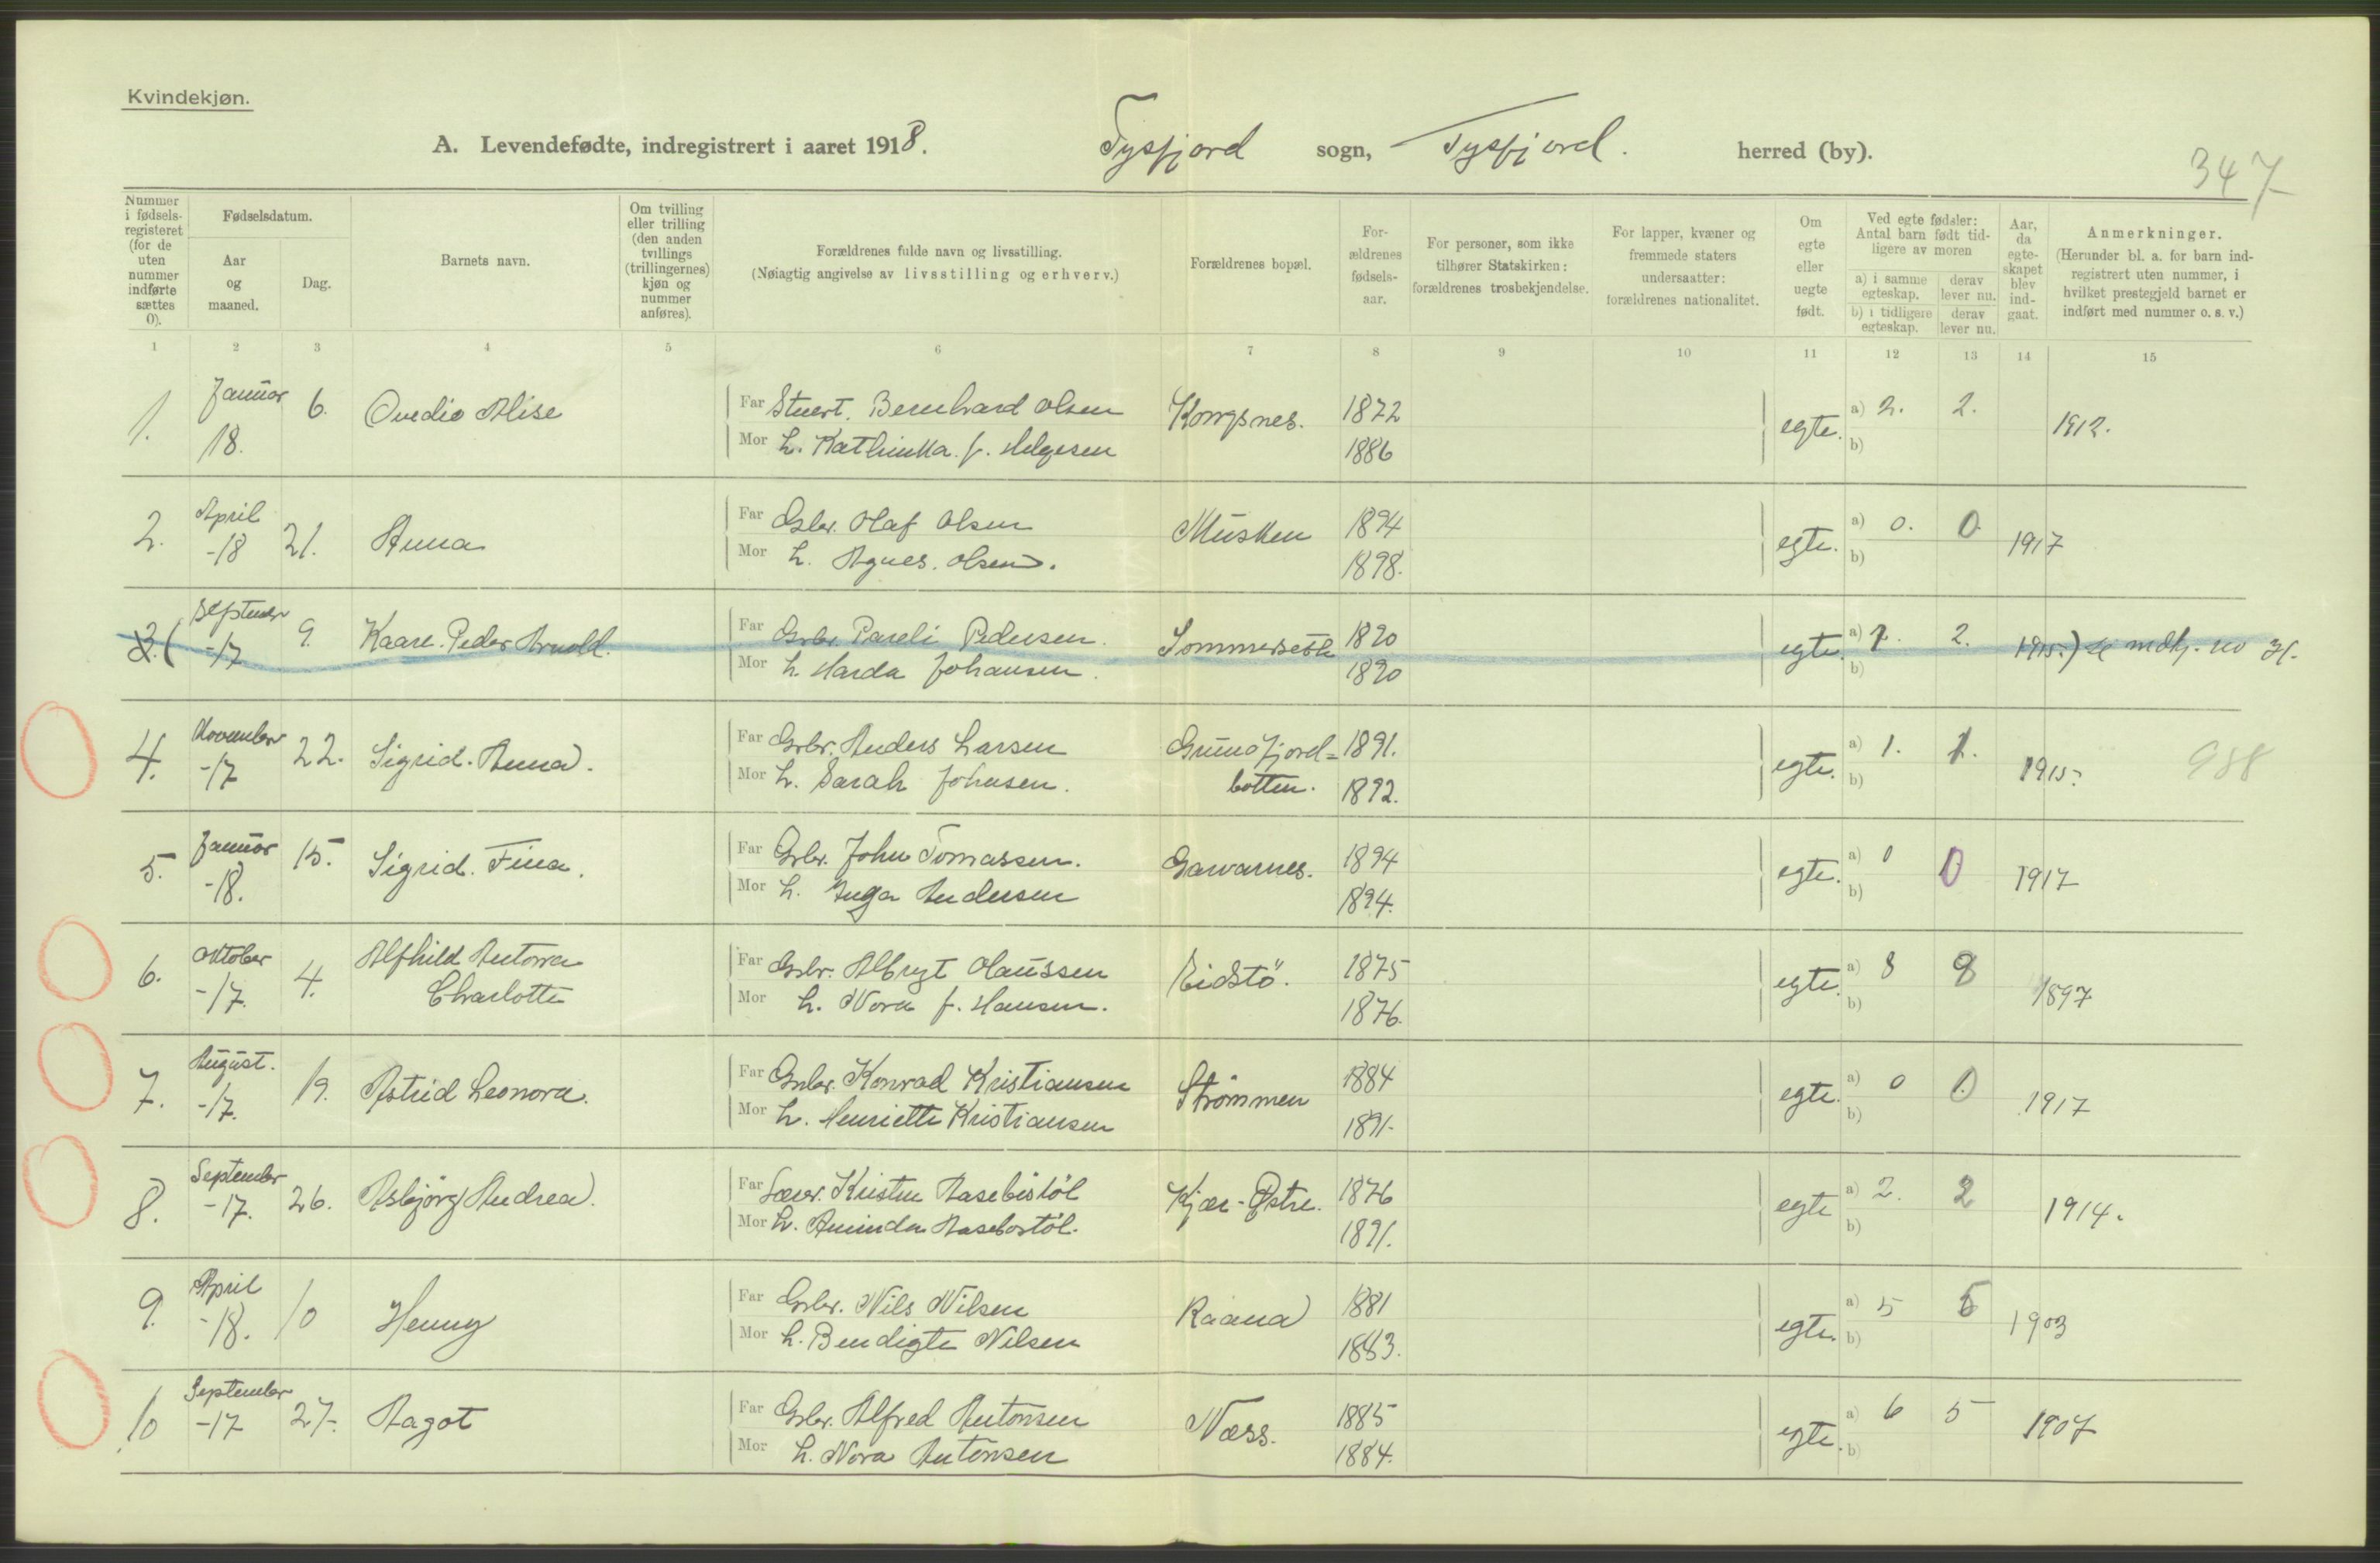 Kvindekjøn.
A. Levendefødte, indregistrert i aaret 1918. Tysfjord sogn, Tysfjord. herred (by).
347
Nummer i fødsels-registeret (for de uten nummer indførte sættes 0).
Fødselsdatum.
Aar og maaned.
Dag.
Barnets navn.
Om tvilling eller trilling (den anden tvillings (trillingernes) kjøn og nummer anføres).
Forældrenes fulde navn og livsstilling.
(Nøiagtig angivelse av livsstilling og erhverv.)
Forældrenes bopæl.
For-ældrenes fødsels-aar.
For personer, som ikke tilhører Statskirken: forældrenes trosbekjendelse.
For lapper, kvæner og fremmede staters undersaatter: forældrenes nationalitet.
Om egte eller uegte født.
Ved egte fødsler: Antal barn født tid-ligere av moren
a) i samme egteskap.
derav lever nu.
b) i tidligere egteskap.
derav lever nu.
Aar, da egte-skapet blev ind-gaat.
Anmerkninger.
(Herunder bl. a. for barn ind-registrert uten nummer, i hvilket prestegjeld barnet er indført med nummer o. s. v.)
1 2 3 4 5 6 7 8 9 10 11 12 13 14 15
1. Januar 18. 6. Ovedie Alise
Far Stuert. Bernhard Olsen Kongsnes. 1872 egte. a) 2. 2. 1912.
Mor h. Kathinka f. Helgesen 1886 b)
2. April -18 21. Anna
Far Gbr. Olaf Olsen Musken 1894 egte. a) 0. 0. 1917
Mor h. Agnes. Olsen. 1898. b)
3. ( September -17 9. Kaare. Peder Arnold.
Far Grbr. Pareli Pedersen. Sommersette 1890 egte. a) 2. 2. 1915.) se mdkj. no 31.
Mor h. Harda Johansen. 1890 b)
4. November -17 22. Sigrid. Anna.
Far Grbr. Anders Larsen Grunnfjord= 1891. egte. a) 1. 1. 1915. 988
Mor h. Sarah Johnsen. botten. 1892. b)
5. Januar -18. 15. Sigrid. Fina.
Far Grbr. John Tomassen. Garvarnes. 1894 egte. a) 0 0 1917
Mor h. Inga Andersen 1894. b)
6. Oktober -17. 4. Alfhild Antona Charlotte
Far Grbr. Albrigt Olaussen Eidstö. 1875 egte. a) 8 8 1897
Mor h. Nora f. Hansen. 1876. b)
7. August. -17. 19. Astrid Leonora.
Far Grbr. Konrad Kristiansen Strömmen 1884 egte. a) 0 0 1917
Mor h. Henriette Kristiansen 1891. b)
8. September -17. 26. Asbjörg Andrea.
Far Lærer. Kristen Aasebistöl Kjær-Østre. 1876 egte a) 2. 2 1914.
Mor h. Aminda Aasebostöl. 1891. b)
9. April -18. 10 Henny
Far Grbr. Nils Nilsen Raana 1881 egte. a) 5 5 1903
Mor h. Bendigte Nilsen 1883. b)
10 September -17 27. Aagot
Far Grbr. Alfred Antonsen Næss. 1885 egte. a) 6 5 1907
Mor h. Nora Antonsen 1884. b)